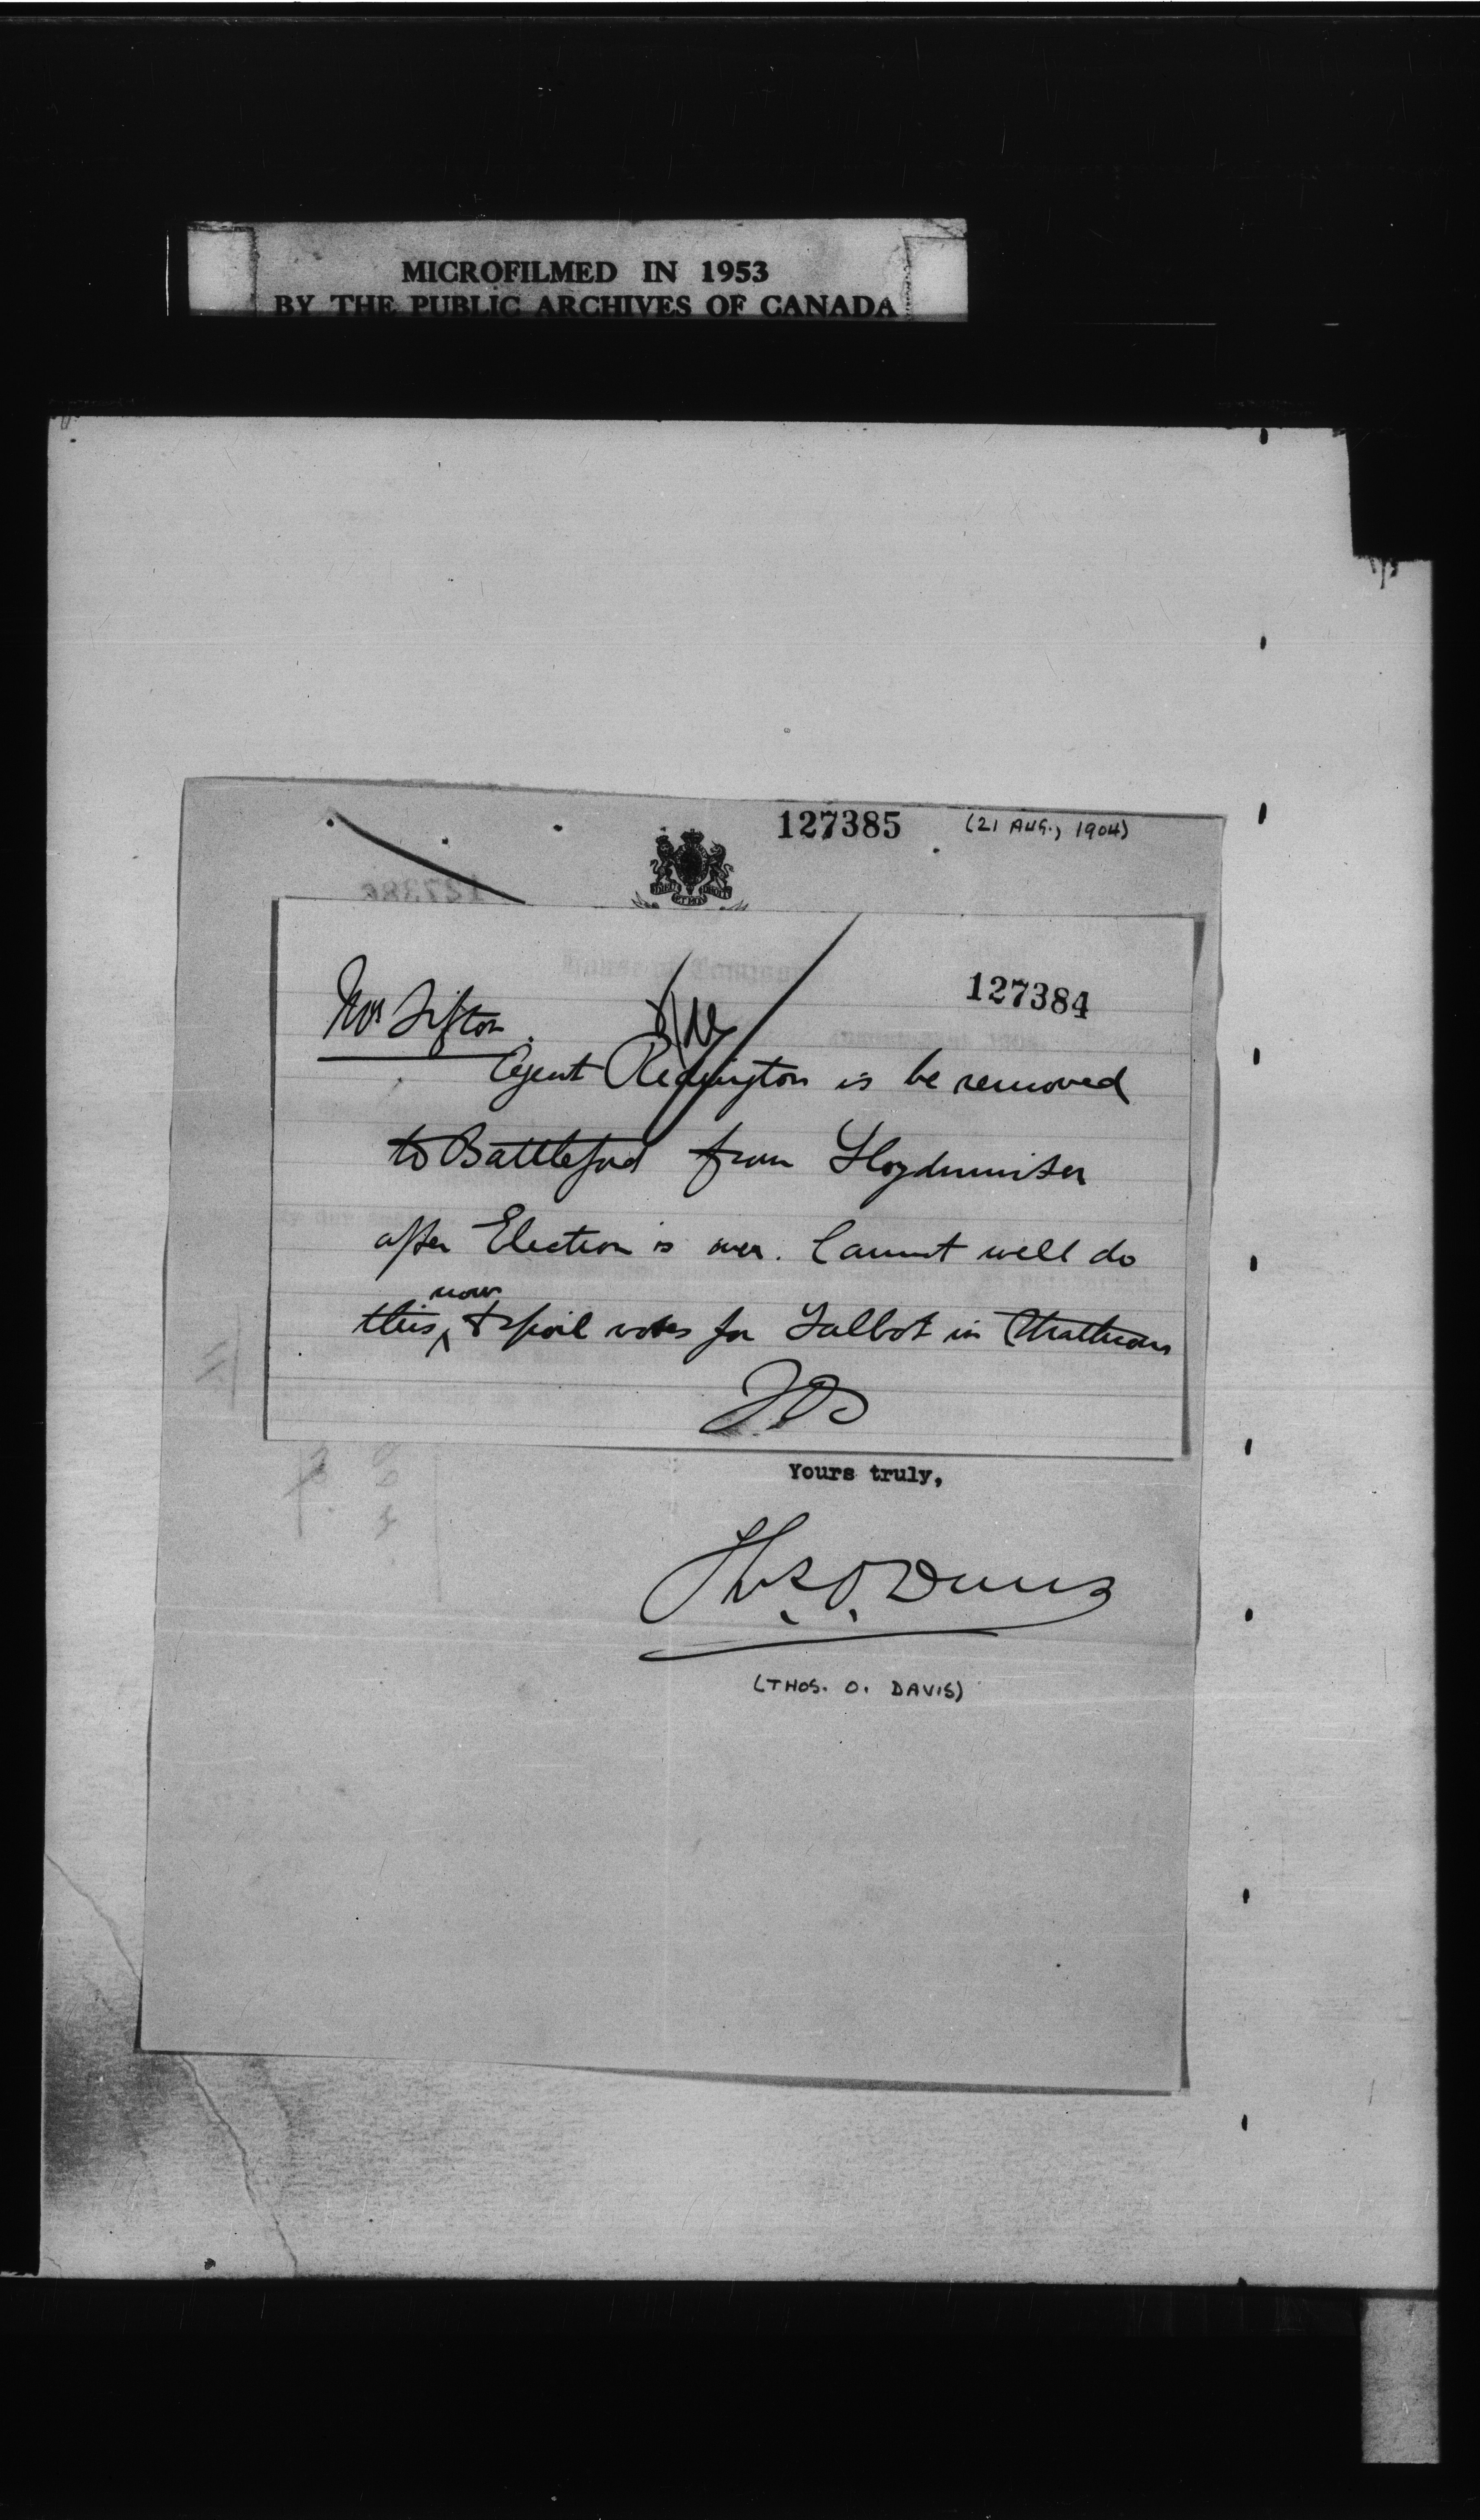 MICROFILMED IN 1953
BY THE PUBLIC ARCHIVES OF CANADA
127385 (21 AUG., 1904)
127386
127384
Mr Sifton.
Agent Redington is be removed
to Battleford from Lloydminster
after Election is over. Cannot well do
now
this, & spoil votes for Talbot in Strathcona
TOD
Yours truly,
Thos. O. Davis
(THOS. O. DAVIS)